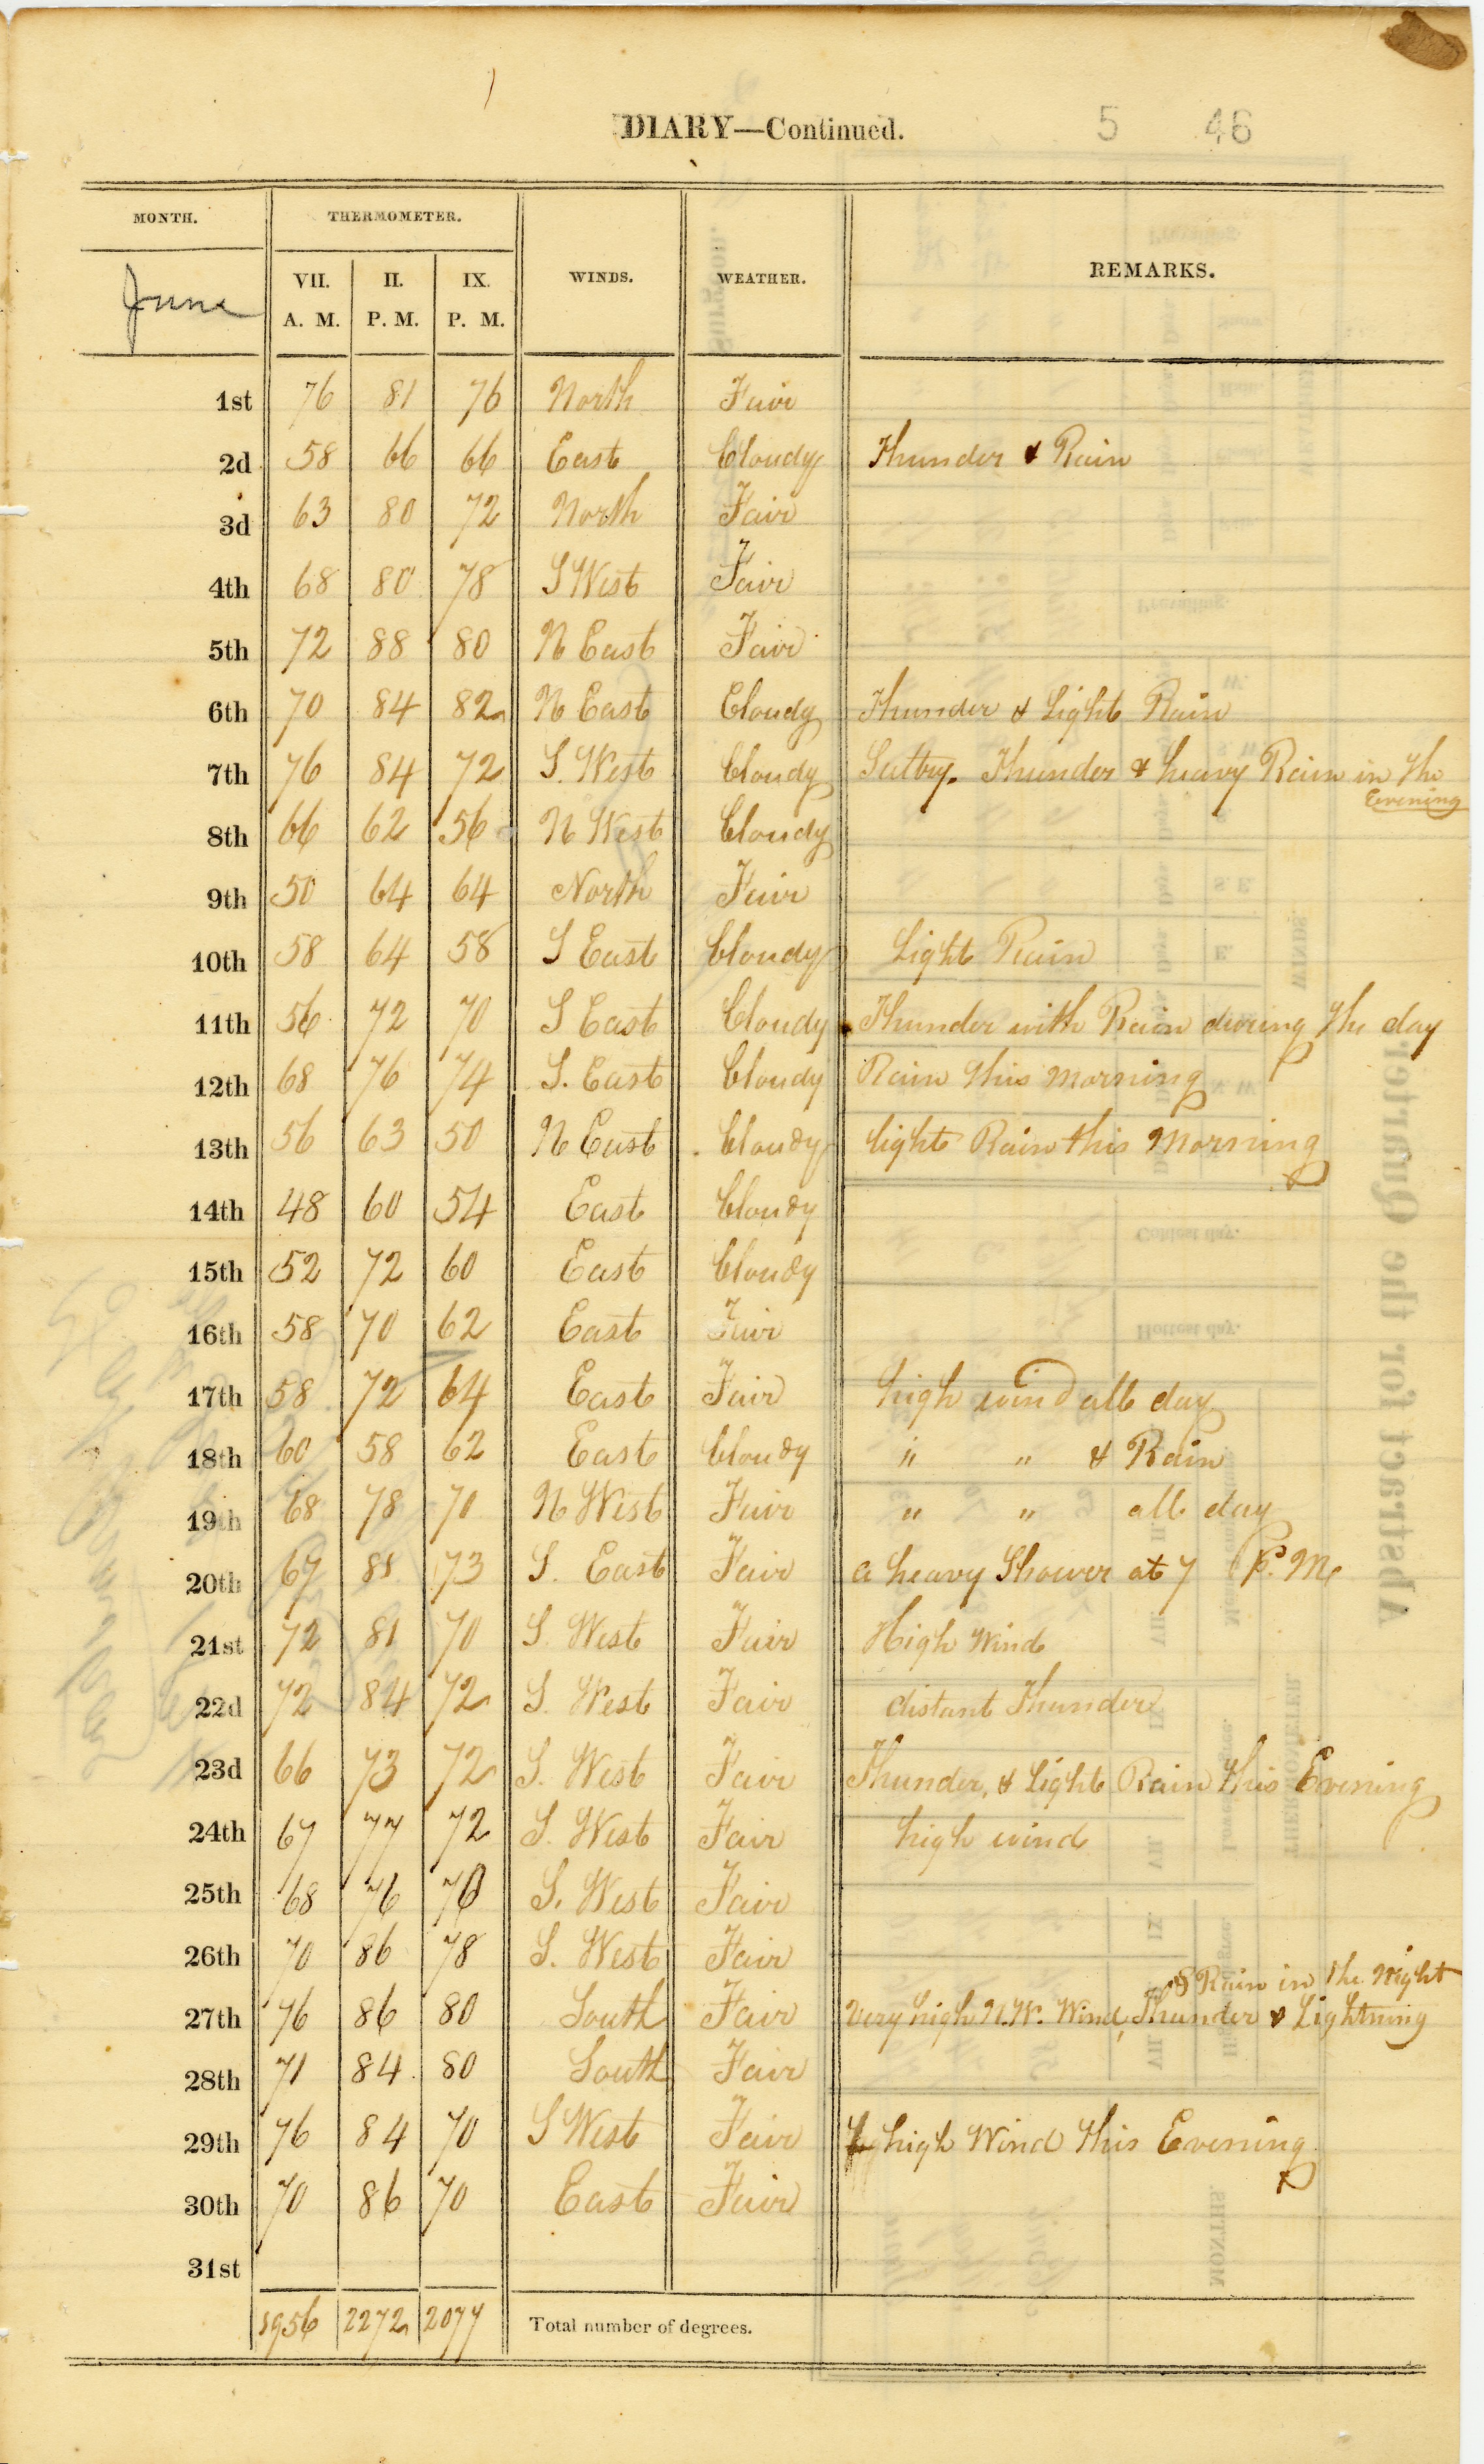 DIARY—Continued.
5 46
MONTH. THERMOMETER. WINDS. WEATHER. REMARKS.
June VII. A. M. II. P. M. IX. P. M.
1st 76 81 76 North Fair
2d 58 66 66 East Cloudy Thunder & Rain
3d 63 80 72 North Fair
4th 68 80 78 S West Fair
5th 72 88 80 N East Fair
6th 70 84 82 N East Cloudy Thunder & Light Rain
7th 76 84 72 S. West Cloudy Sultry. Thunder & heavy Rain in the
Evening
8th 66 62 56 N West Cloudy
9th 50 64 64 North Fair
10th 58 64 58 S East Cloudy Light Rain
11th 56 72 70 S East Cloudy Thunder with Rain during the day
12th 68 76 74 S. East Cloudy Rain this morning
13th 56 63 50 N East Cloudy light Rain this Morning
14th 48 60 54 East Cloudy
15th 52 72 60 East Cloudy
16th 58 70 62 East Fair
17th 58 72 64 East Fair high wind all day
18th 60 58 62 East Cloudy " " & Rain
19th 68 78 70 N West Fair " " all day
20th 67 88 73 S. East Fair a heavy Shower at 7 P. M.
21st 72 81 70 S. West Fair High Wind
22d 72 84 72 S. West Fair distant Thunder
23d 66 73 72 S. West Fair Thunder, & Light Rain this Evening
24th 67 77 72 S. West Fair high wind
25th 68 76 70 S. West Fair
26th 70 86 78 S. West Fair
& Rain in the Night
27th 76 86 80 South Fair Very high N.W. Wind, Thunder & Lightning
28th 71 84 80 South Fair
29th 76 84 70 S West Fair high Wind this Evening
30th 70 86 70 East Fair
31st
1956 2272 2077 Total number of degrees.